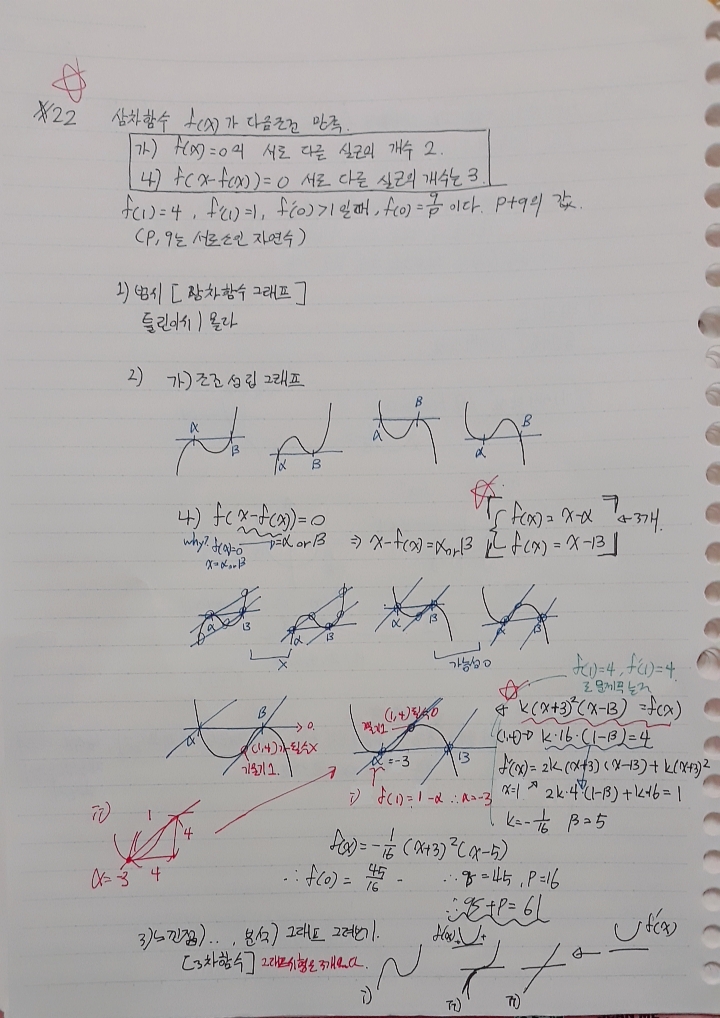 ※22 삼차함수 f(x)가 다음조건 만족.
가) f(x)=0의 서로 다른 실근의 개수 2.
나) f(x-f(x))=0 서로 다른 실근의 개수는 3.
f(1)=4, f'(1)=1, f'(0)>1일때, f(0)=q/p이다. p+q의 값.
(p, q는 서로소인 자연수)
1) 범위 [삼차함수 그래프]
틀린이유) 몰라
2) 가) 조건 성립 그래프
α β
α β
α β
α β
나) f(x-f(x))=0
=α or β
why? f(x)=0
x=α or β
⇒ x-f(x)=α or β
f(x)=x-α
f(x)=x-β
←3개.
α β
α β
α β
α β
X
가능성 O
f(1)=4, f'(1)=4
α β
(1,4)가 필수X
기울기 1.
기울기1
(1,4)필수O
α=-3 β
i) f(1)=1-α ∴α=-3
k(x+3)²(x-β)=f(x)
(1,4)→ k·16·(1-β)=4
f'(x)=2k(x+3)(x-β)+k(x+3)²
x=1 2k·4(1-β)+k·16=1
k=-1/16 β=5
ii) 1
4
4
α=-3
f(x)=-1/16(x+3)²(x-5)
∴f(0)=45/16
∴q=45, p=16
∴q+p=61
3) 느낀점) ... 분석) 그래프 그려보기.
[3차함수]
f(x)
f'(x)
i)
ii)
iii)